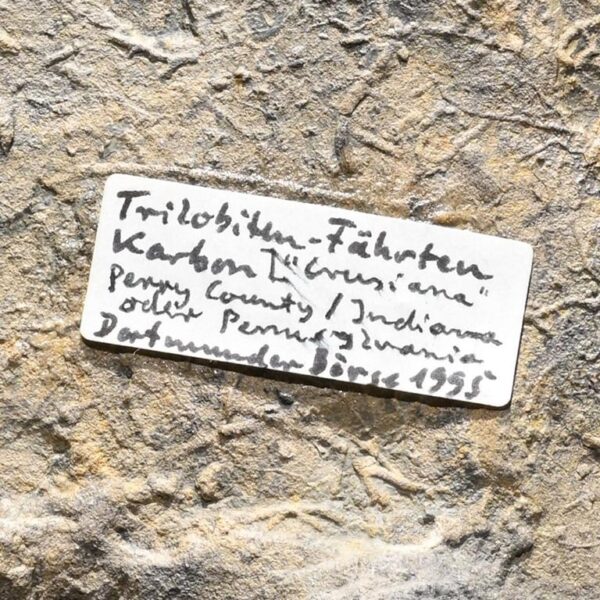 Trilobiten-Fährten
Karbon ["Crusiana"
Perry County/Indiana
oder Pennsylvania
Dortmunder Börse 1995